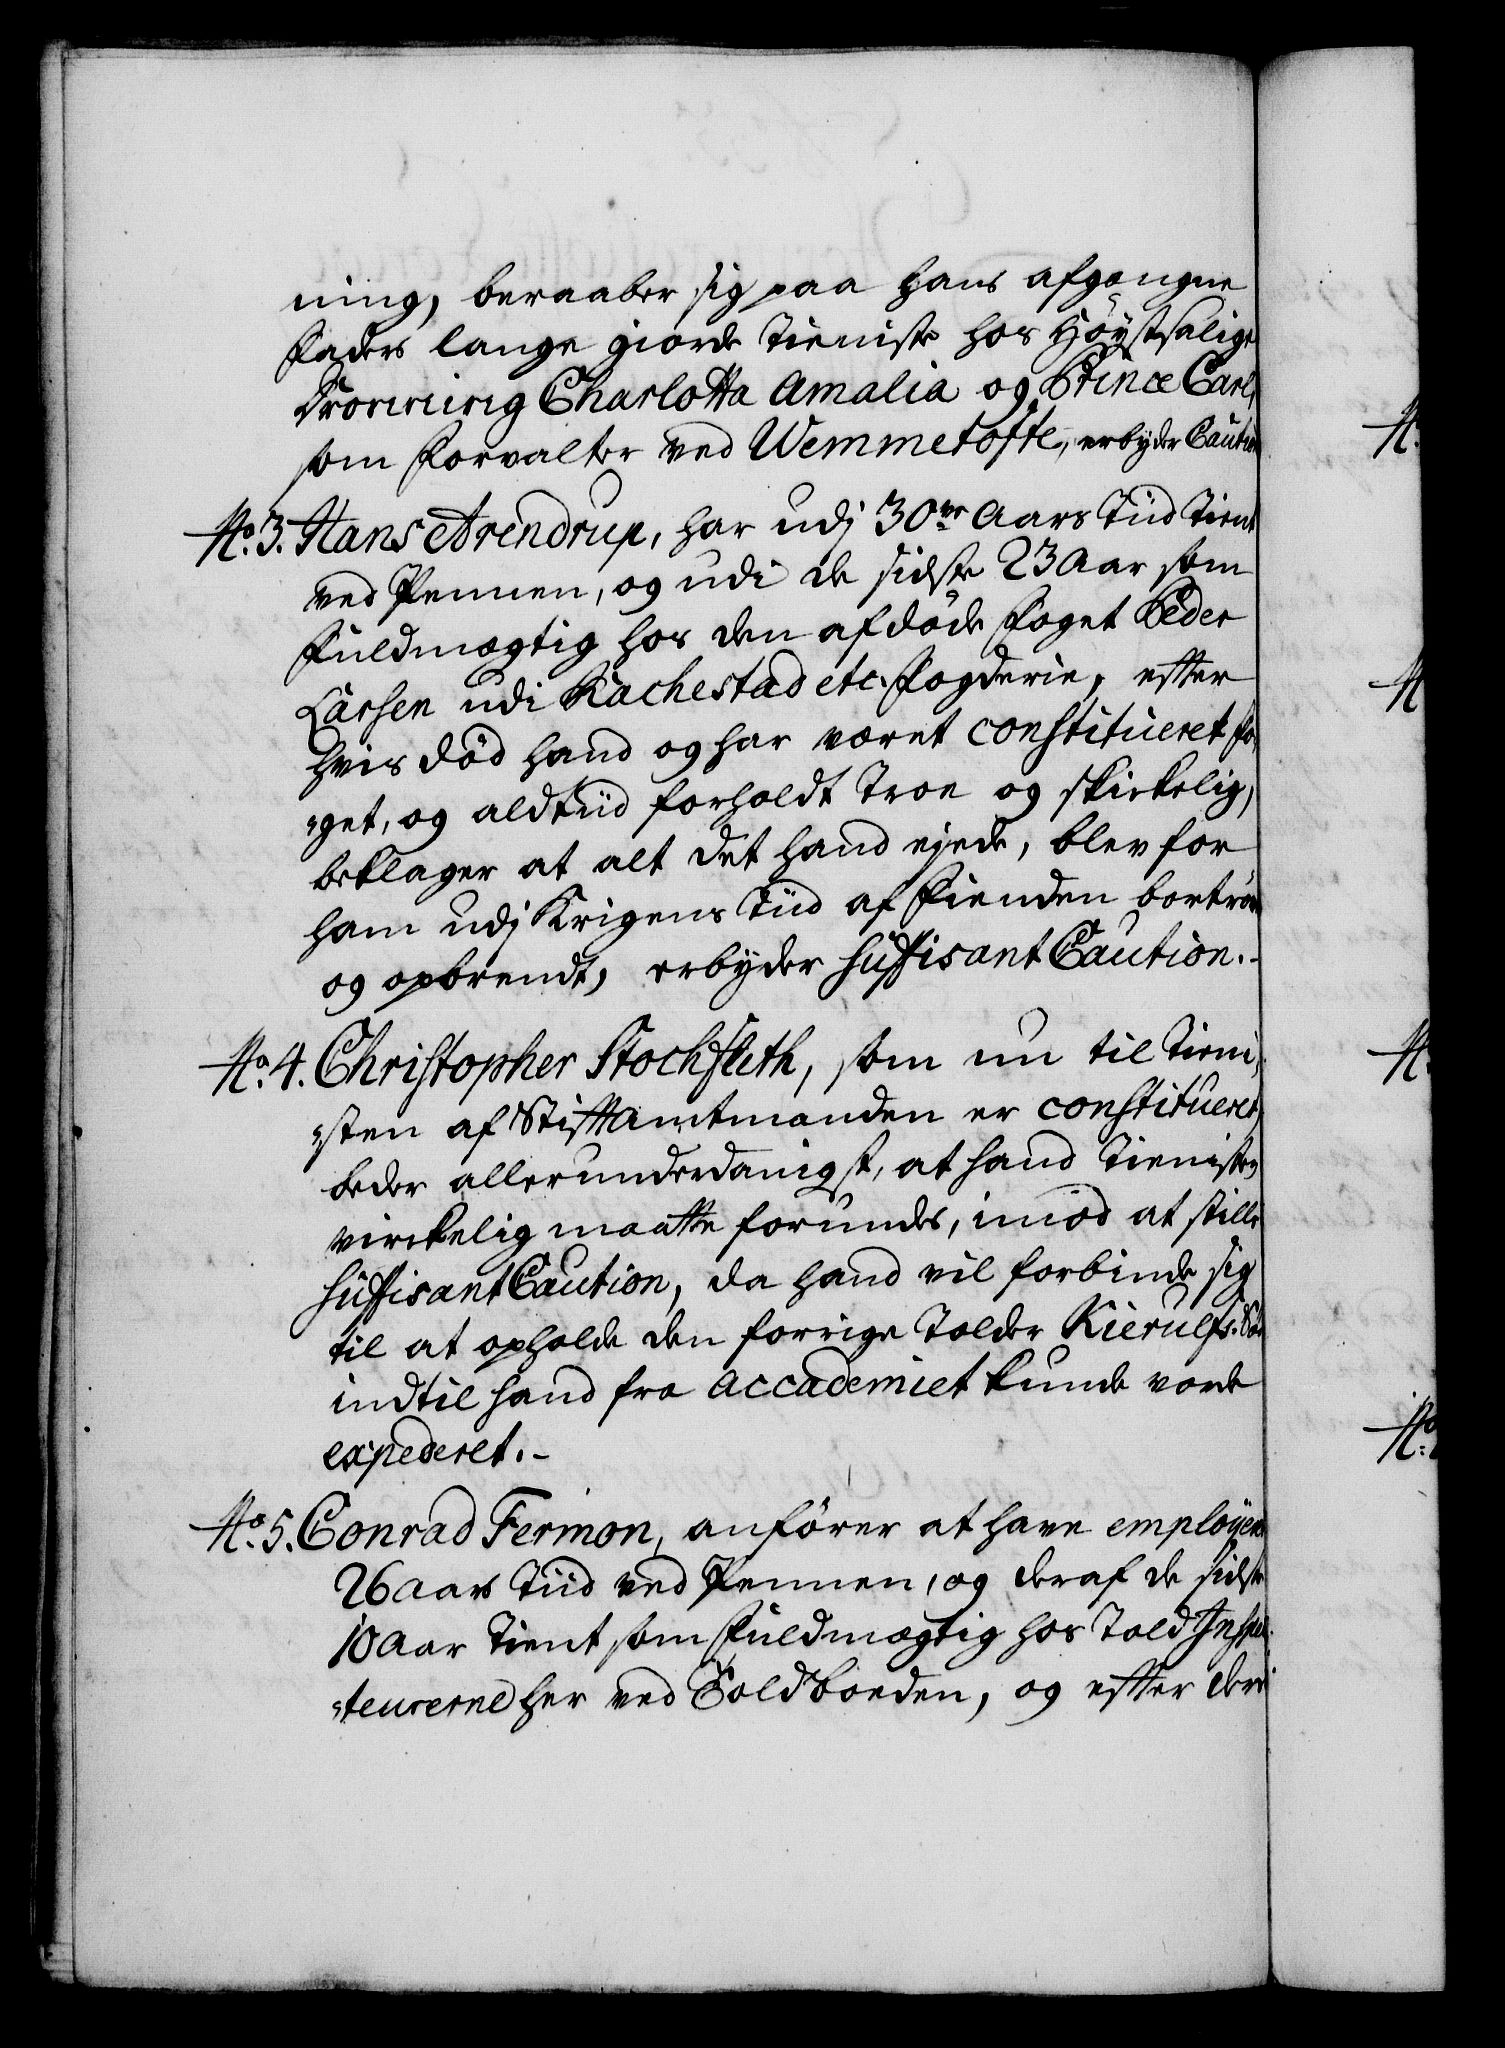 ning, beraaber sig paa hans afgangne
Faders lange giorde Tieniste hos Höystsalige
Dronning Charlotta Amalia og Prince Carl,
som Forvalter ved Wemmetofte, erbyder Caution
No. 3. Hans Arendrup, har udj 30ve Aars Tiid Tient
ved Pennen, og udi de sidste 23 Aar som
Fuldmægtig hos den afdöde Foget Peder
Larsen udi Rachestad etc. Fogderie, efter
hvis död hand og har været constitueret Fo-
"get, og aldtiid forholdt Troe og skickelig,
beklager at alt det hand ejede, blev for
ham udj Krigens Tiid af Fienden bortröv
og opbrendt, erbyder suffisant Caution.-
No. 4. Christopher Stochfleth, som nu til Tieni-
"sten af Stiftamtmanden er constitueret,
beder allerunderdanigst, at hand Tienisten
virckelig maatte forundes, imod at stille
suffisant Caution, da hand vil forbinde sig
til at opholde den forrige Tolder Kierulfs
indtil hand fra Accademiet kunde vorde
expederet.-
No. 5. Conrad Fermon, anförer at have employeret
26 Aars Tiid ved Pennen, og deraf de sidste
10 Aar Tient som Fuldmægtig hos Told Inspec-
"teurerne her ved Toldboeden, og efter deri